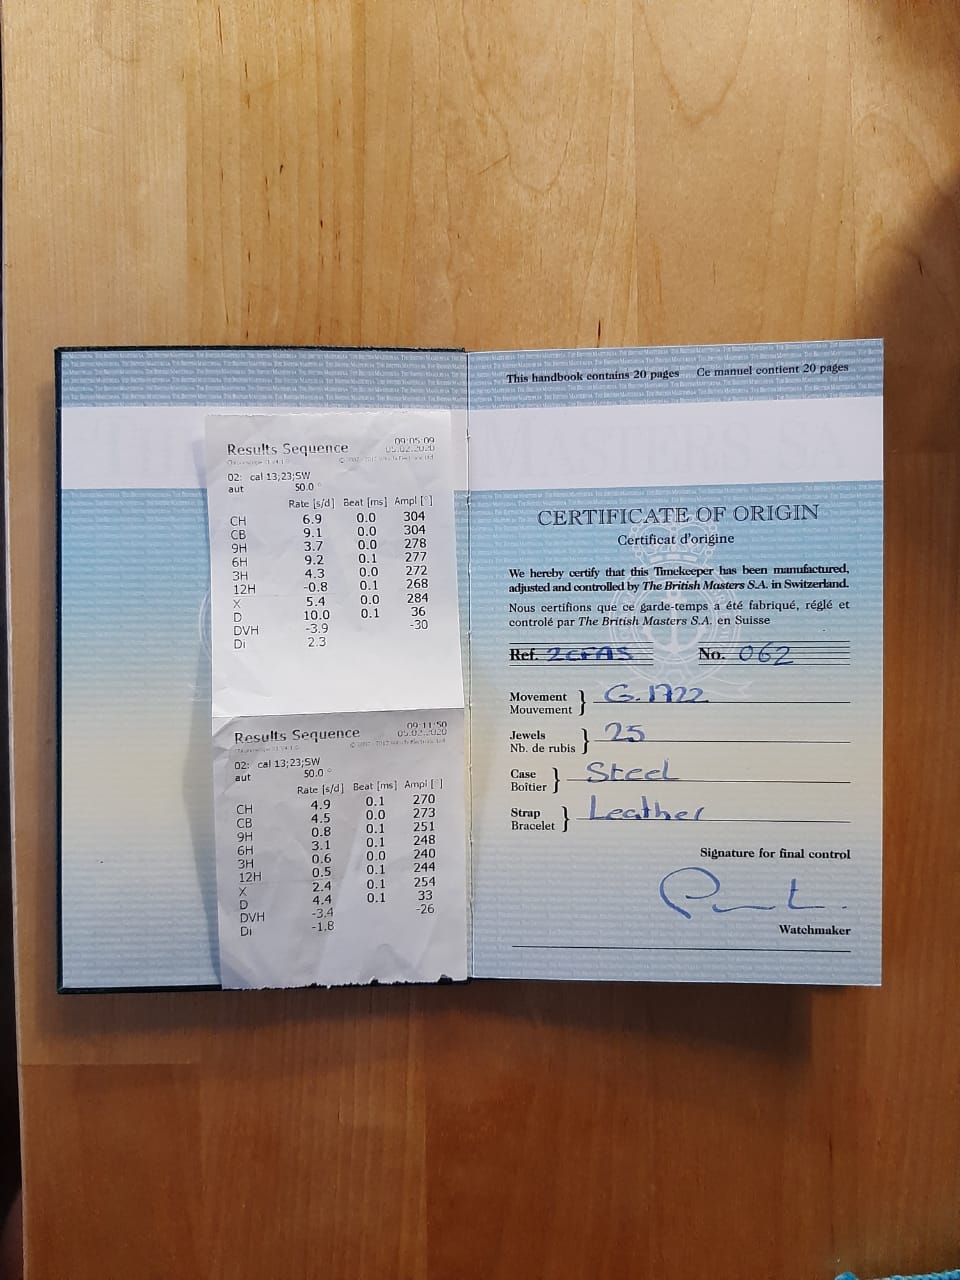 Results Sequence 09:05:09
05.02.2020
02: cal 13;23;SW
aut 50.0 °
Rate [s/d] Beat [ms] Ampl [°]
CH 6.9 0.0 304
CB 9.1 0.0 304
9H 3.7 0.0 278
6H 9.2 0.1 277
3H 4.3 0.0 272
12H -0.8 0.1 268
X 5.4 0.0 284
D 10.0 0.1 36
DVH -3.9 -30
Di 2.3
Results Sequence 09:11:50
05.02.2020
02: cal 13;23;SW
aut 50.0 °
Rate [s/d] Beat [ms] Ampl [°]
CH 4.9 0.1 270
CB 4.5 0.0 273
9H 0.8 0.1 251
6H 3.1 0.1 248
3H 0.6 0.0 240
12H 0.5 0.1 244
X 2.4 0.1 254
D 4.4 0.1 33
DVH -3.4 -26
Di -1.8
This handbook contains 20 pages Ce manuel contient 20 pages
CERTIFICATE OF ORIGIN
Certificat d'origine
We hereby certify that this Timekeeper has been manufactured,
adjusted and controlled by The British Masters S.A. in Switzerland.
Nous certifions que ce garde-temps a été fabriqué, réglé et
contrôlé par The British Masters S.A. en Suisse
Ref. 2CFAS No. 062
Movement
Mouvement } G.1722
Jewels
Nb. de rubis } 25
Case
Boîtier } Steel
Strap
Bracelet } Leather
Signature for final control
Watchmaker